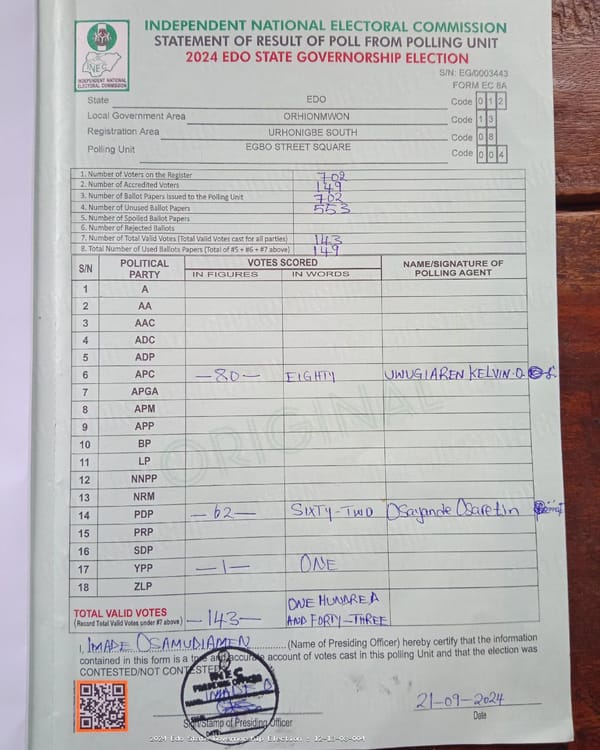 INDEPENDENT NATIONAL ELECTORAL COMMISSION
STATEMENT OF RESULT OF POLL FROM POLLING UNIT
2024 EDO STATE GOVERNORSHIP ELECTION
INEC
INDEPENDENT NATIONAL
ELECTORAL COMMISSION
S/N: EG/0003443
FORM EC 8A
State EDO Code 0 1 2
Local Government Area ORHIONMWON Code 1 3
Registration Area URHONIGBE SOUTH Code 0 8
Polling Unit EGBO STREET SQUARE Code 0 0 4
1. Number of Voters on the Register 702
2. Number of Accredited Voters 149
3. Number of Ballot Papers Issued to the Polling Unit 702
4. Number of Unused Ballot Papers 553
5. Number of Spoiled Ballot Papers
6. Number of Rejected Ballots
7. Number of Total Valid Votes (Total Valid Votes cast for all parties) 143
8. Total Number of Used Ballots Papers (Total of #5 + #6 + #7 above) 149
S/N POLITICAL PARTY VOTES SCORED NAME/SIGNATURE OF POLLING AGENT
IN FIGURES IN WORDS
1 A
2 AA
3 AAC
4 ADC
5 ADP
6 APC -80- EIGHTY UWUGIAREN KELVIN.O
7 APGA
8 APM
9 APP
10 BP
11 LP
12 NNPP
13 NRM
14 PDP -62- SIXTY-TWO Osayande Osaretin
15 PRP
16 SDP
17 YPP -1- ONE
18 ZLP
ORIGINAL
TOTAL VALID VOTES
(Record Total Valid Votes under #7 above) -143- ONE HUNDREA
AND FORTY-THREE
I, IMADE OSAMUDIAMEN (Name of Presiding Officer) hereby certify that the information
contained in this form is a true and accurate account of votes cast in this polling unit and that the election was
CONTESTED/NOT CONTESTED
INEC
PRESIDING OFFICER
NAME: IMADE O
SIGN:
DATE:
Sign/Stamp of Presiding Officer
21-09-2024
Date
2024 Edo State Governorship Election : 12-13-08-004